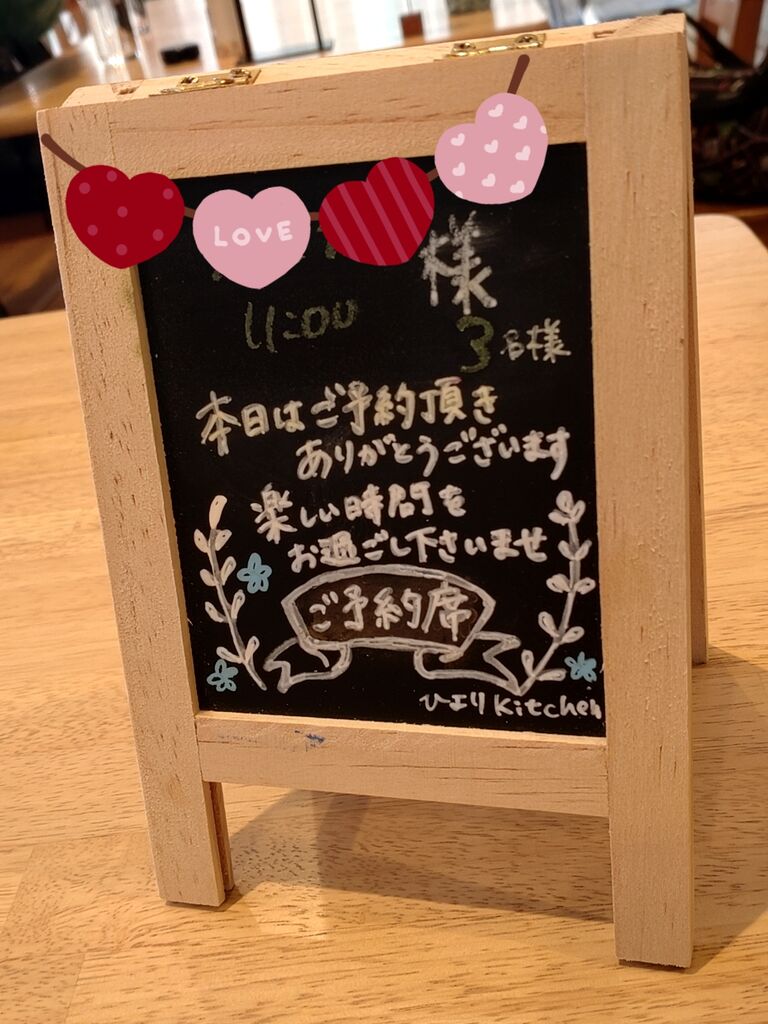 LOVE
様
11:00
3名様
本日はご予約頂き
ありがとうございます
楽しい時間を
お過ごし下さいませ
ご予約席
ひよりKitchen